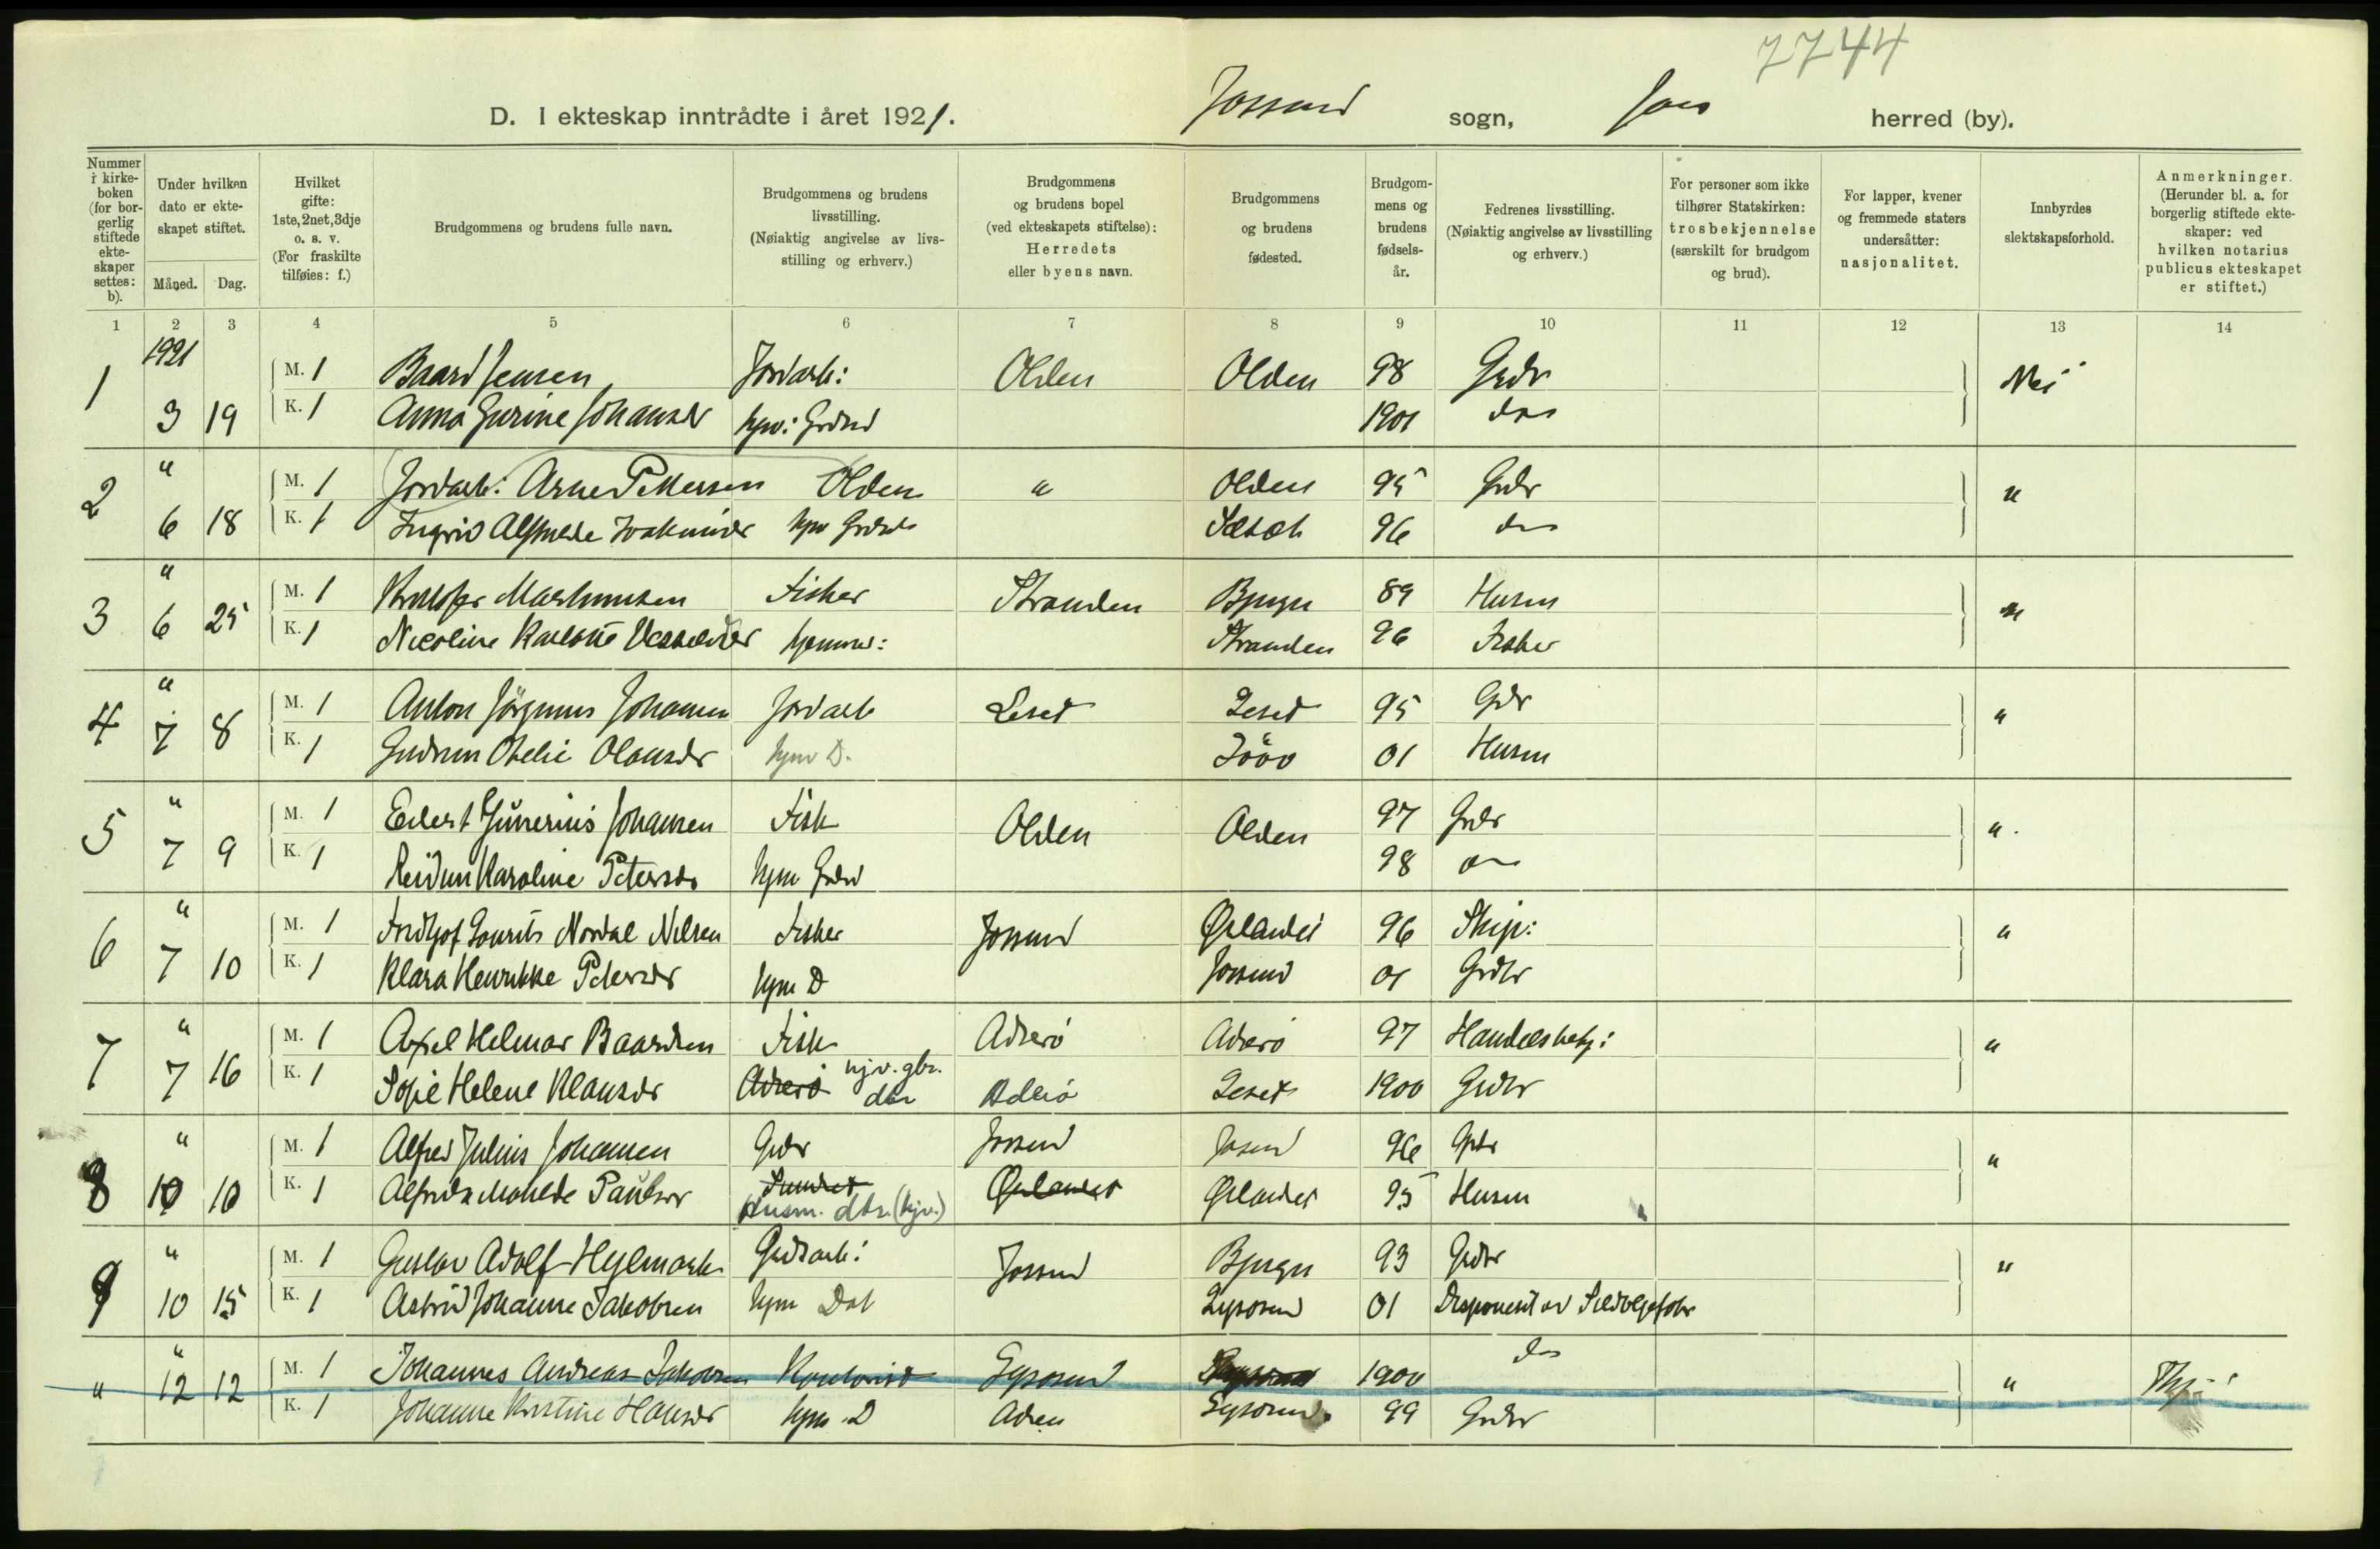 7744
D. I ekteskap inntrådte i året 1921. Jossund sogn, herred (by).
Nummer i kirkeboken (for borgerlig stiftede ekteskaper settes: b).
Under hvilken dato er ekteskapet stiftet.
Måned. Dag.
Hvilket gifte: 1ste, 2net, 3dje o. s. v. (For fraskilte tilføies: f.)
Brudgommens og brudens fulle navn.
Brudgommens og brudens livsstilling. (Nøiaktig angivelse av livsstilling og erhverv.)
Brudgommens og brudens bopel (ved ekteskapets stiftelse): Herredets eller byens navn.
Brudgommens og brudens fødested.
Brudgommens og brudens fødselsår.
Fedrenes livsstilling. (Nøiaktig angivelse av livsstilling og erhverv.)
For personer som ikke tilhører Statskirken: trosbekjennelse (særskilt for brudgom og brud).
For lapper, kvener og fremmede staters undersåtter: nasjonalitet.
Innbyrdes slektskapsforhold.
Anmerkninger. (Herunder bl. a. for borgerlig stiftede ekteskaper: ved hvilken notarius publicus ekteskapet er stiftet.)
1 2 3 4 5 6 7 8 9 10 11 12 13 14
1921
1 M. 1 Baard Jensen Jordarb: Olden Olden 98 Grdr Nei
3 19 K. 1 Anna Gurine Johansdr hjv: Grdrd 1901 do
2 " M. 1 Jordarb: Arne Pettersen Olden " Olden 95 Grdr "
6 18 K. 1 Ingrid Joakimsdr hjv 96 do
3 " M. 1 Fisker Stranden Bjugn 89 Husm "
6 25 K. 1 Nicoline hjemmev: Stranden 96 Fisker
4 " M. 1 Anton Johansen Jordarb Leset Leset 95 Gdr "
7 8 K. 1 Gudrun Olausdr hjv D. 01 Husm
5 " M. 1 Johansen Fisk Olden Olden 97 Grdr "
7 9 K. 1 Reidun Karoline Petersdr hjm 98 do
6 " M. 1 Fridtjof Nordal Nilsen Fisker Jossund Ørlandet 96 Skip: "
7 10 K. 1 Klara Henrikke Petersdr hjm D Jossund 01 Grdbr
7 " M. 1 Axel Helmar Baardsen Fisk Adserø Adserø 97 "
7 16 K. 1 Sofie Helene Klausdr Adserø hjv. gbr. dtr Adserø Leset 1900 Grdbr
8 " M. 1 Alfred Julius Johansen Grdr Jossund Josund 96 Grdr "
10 10 K. 1 Husm. dtr. (hjv.) Ørlandet Ørlandet 95 Husm
9 " M. 1 Gustav Adolf Hylmark Grdsarb: Jossund Bjugn 93 Grdbr "
10 15 K. 1 Astrid Johanne Jakobsen hjm Dat Lysøsund 01
" " M. 1 Johannes Andreas Jakobsen Kontorist Lysøsund 1900 do "
12 12 K. 1 Johanne Kristine Hansdr hjm D Lysøsund 99 Grdbr